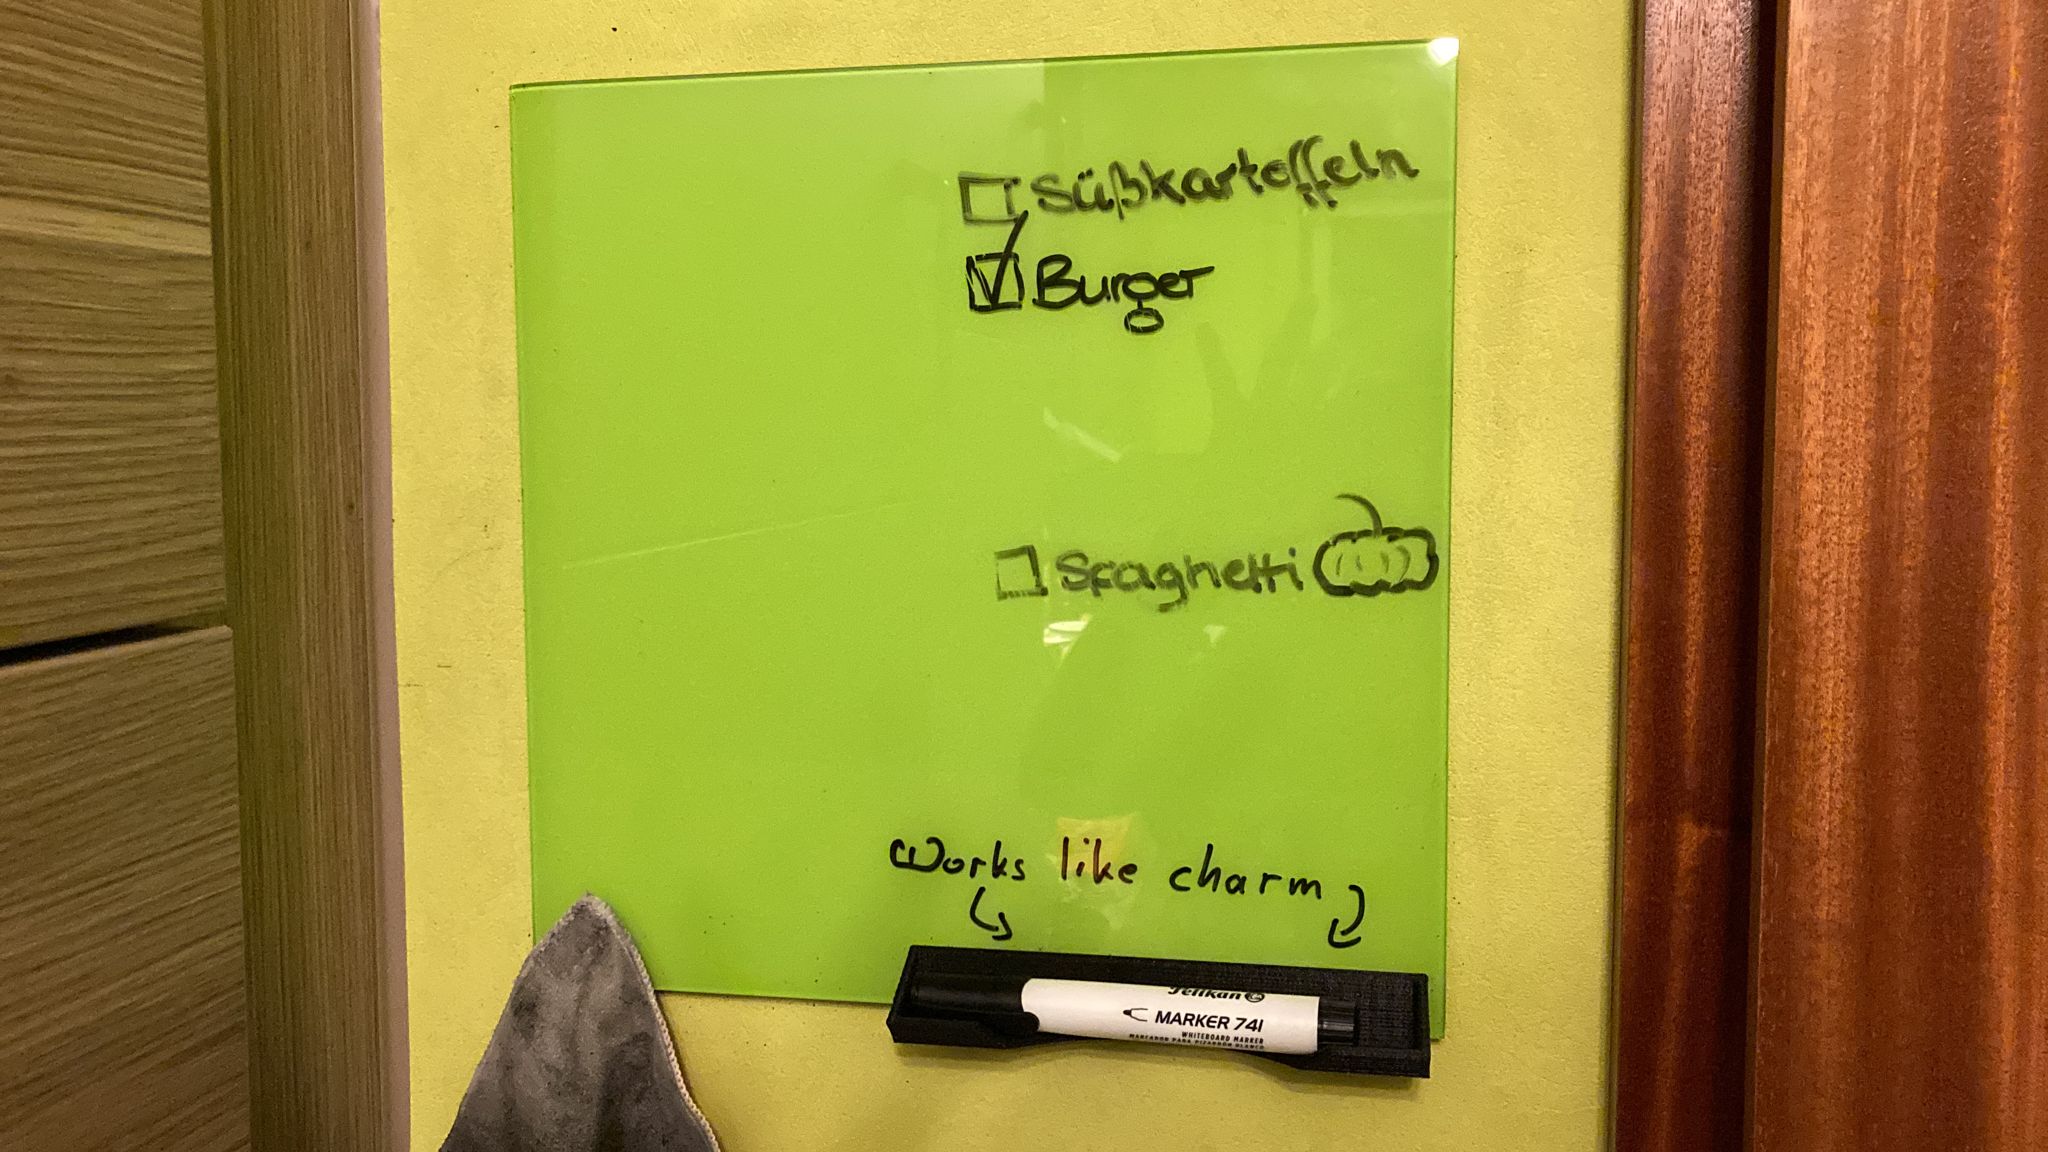 Süßkartoffeln
Burger
Spaghetti
Works like charm
Pelikan
MARKER 741
WHITEBOARD MARKER
MARCADOR PARA PIZARRÓN BLANCO